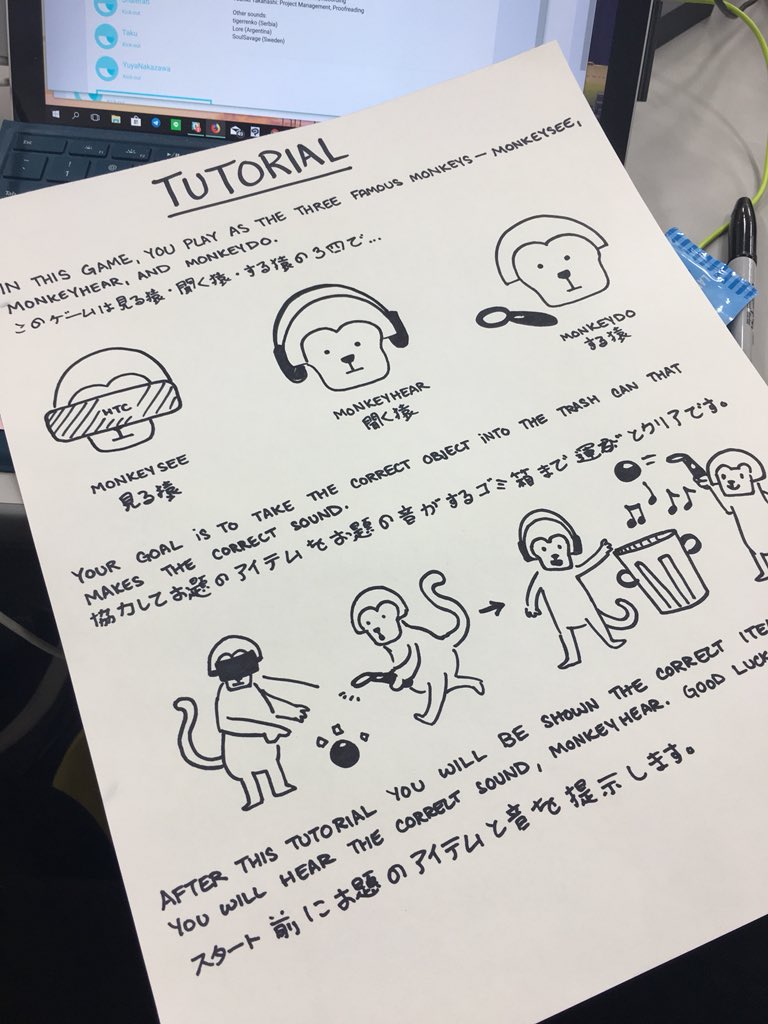 Kick out
Taku
Kick out
YuyaNakazawa
Kick out
Project Management, Proofreading
Other sounds:
tigerrenko (Serbia)
Lore (Argentina)
SoulSavage (Sweden)
Esc
TUTORIAL
IN THIS GAME, YOU PLAY AS THE THREE FAMOUS MONKEYS — MONKEYSEE,
MONKEYHEAR, AND MONKEYDO.
このゲームは見る猿・聞く猿・する猿の3匹で...
HTC
MONKEYSEE
見る猿
MONKEYHEAR
聞く猿
MONKEYDO
する猿
YOUR GOAL IS TO TAKE THE CORRECT OBJECT INTO THE TRASH CAN THAT
MAKES THE CORRECT SOUND.
協力してお題のアイテムをお題の音がするゴミ箱まで運ぶとクリアです。
AFTER THIS TUTORIAL YOU WILL BE SHOWN THE CORRECT ITE
YOU WILL HEAR THE CORRECT SOUND, MONKEYHEAR. GOOD LUCK
スタート前にお題のアイテムと音を提示します。